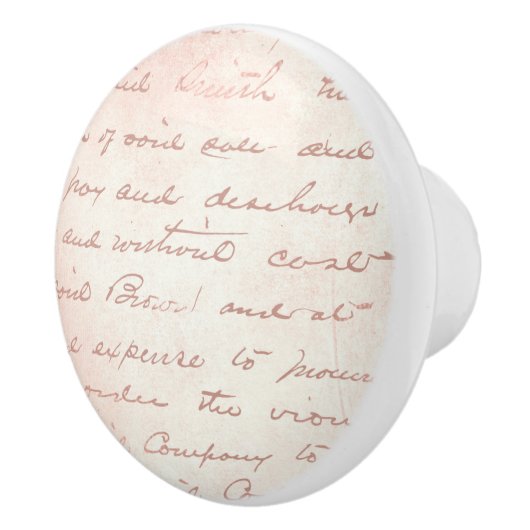 Smith
of said sale and
pay and discharge
and without cost
said Brown and at
expense to
under the
Company to